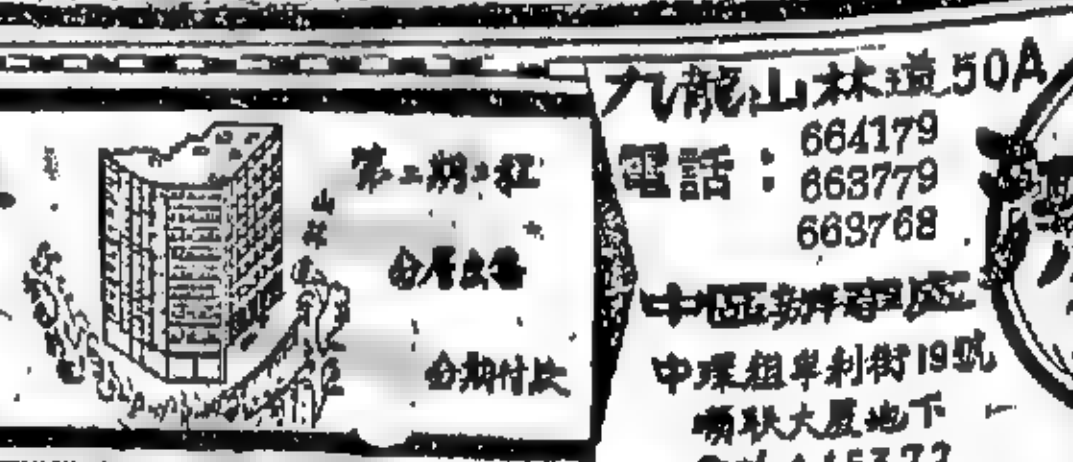 第二期工程
山林道
分層出售
分期付款
九龍山林道50A
電話：664179
663779
663768
中區辦事處
中環租卑利街19號
大廈地下